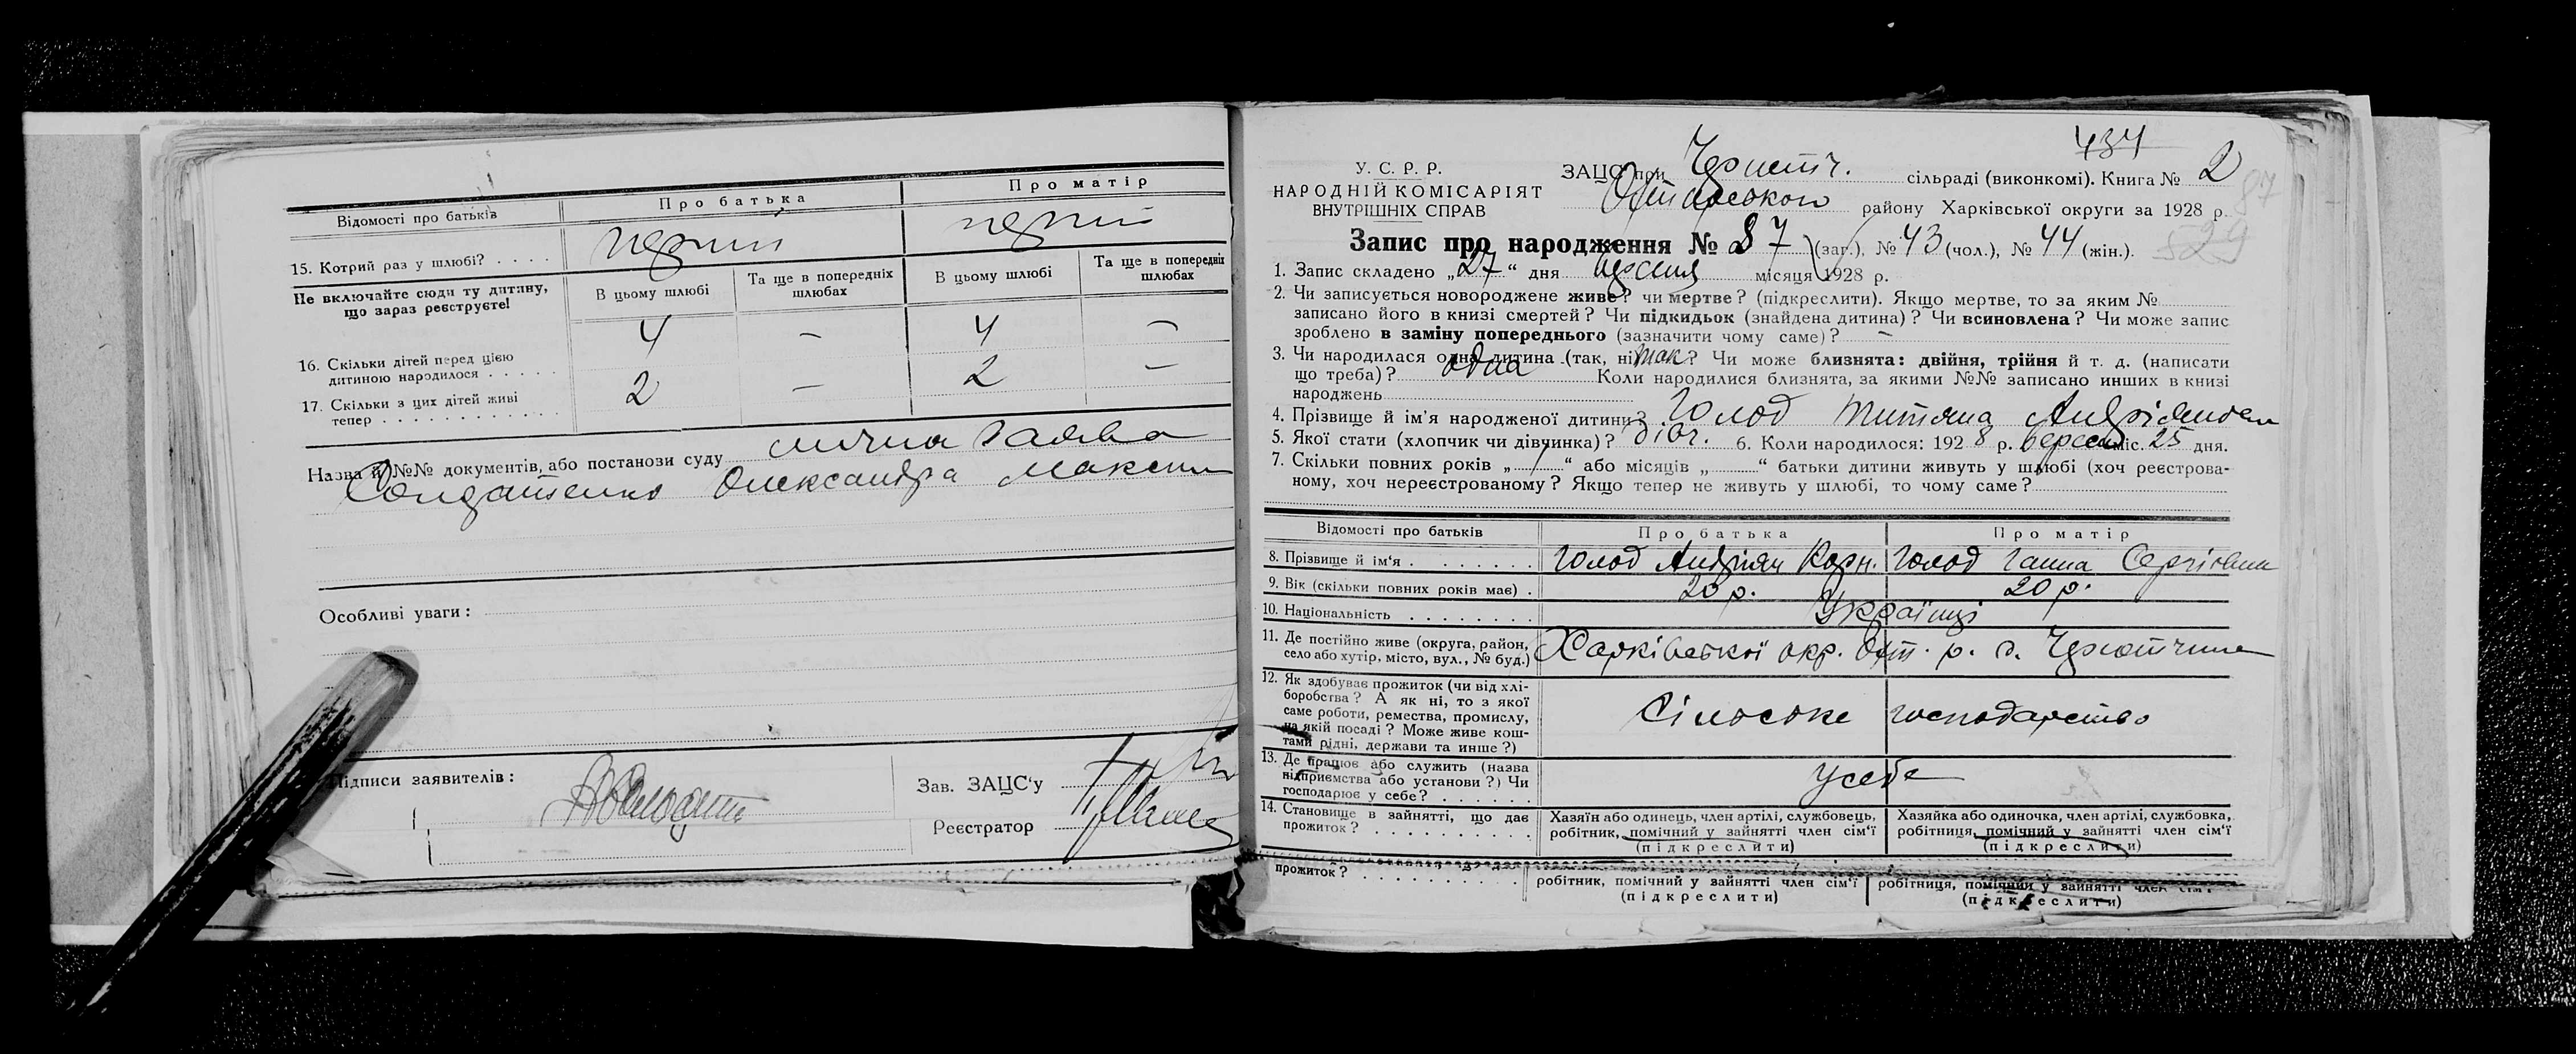 Відомості про батьків
Про батька
Про матір
15. Котрий раз у шлюбі? . . . .
перший
перший
Не включайте сюди ту дитину,
що зараз реєструєте!
В цьому шлюбі
Та ще в попередніх
шлюбах
В цьому шлюбі
Та ще в попередніх
шлюбах
16. Скільки дітей перед цією
дитиною народилося . . . . .
4
—
4
—
17. Скільки з цих дітей живі
тепер . . . . . . . . . . . .
2
—
2
—
Назва й №№ документів, або постанови суду
лична заява
Солдатенко Олександра Максим
Особливі уваги:
Підписи заявителів:
Зав. ЗАЦС'у
Реєстратор
434
У. С. Р. Р.
НАРОДНІЙ КОМІСАРІЯТ
ВНУТРІШНІХ СПРАВ
ЗАЦС при сільраді (виконкомі). Книга № 2
87
району Харківської округи за 1928 р.
Запис про народження № 87 (заг.), № 43 (чол.), № 44 (жін.).
29
1. Запис складено „27“ дня місяця 1928 р.
2. Чи записується новороджене живе? чи мертве? (підкреслити). Якщо мертве, то за яким №
записано його в книзі смертей? Чи підкидьок (знайдена дитина)? Чи всиновлена? Чи може запис
зроблено в заміну попереднього (зазначити чому саме)? —
3. Чи народилася одна дитина (так, ні) так? Чи може близнята: двійня, трійня й т. д. (написати
що треба)? одна Коли народилися близнята, за якими №№ записано инших в книзі
народжень
4. Прізвище й ім'я народженої дитини Голод Титяна
5. Якої стати (хлопчик чи дівчинка)? дівч. 6. Коли народилося: 1928 р. вересн міс. 25 дня.
7. Скільки повних років „ “ або місяців „ “ батьки дитини живуть у шлюбі (хоч реєстрова-
ному, хоч нереєстрованому? Якщо тепер не живуть у шлюбі, то чому саме?
Відомості про батьків
Про батька
Про матір
8. Прізвище й ім'я . . . . . . . .
Голод Андріян Корн.
Голод Ганна Сергіївна
9. Вік (скільки повних років має) .
20 р.
20 р.
10. Національність . . . . . . . .
Українці
11. Де постійно живе (округа, район,
село або хутір, місто, вул., № буд.)
Харківської окр. р. с.
12. Як здобуває прожиток (чи від хлі-
боробства? А як ні, то з якої
саме роботи, ремества, промислу,
на якій посаді? Може живе кош-
тами рідні, держави та инше?)
Сільське господарство
13. Де працює або служить (назва
підприємства або установи?) Чи
господарює у себе? . . . . . .
у себе
14. Становище в зайнятті, що дає
прожиток? . . . . . . . . . .
Хазяїн або одинець, член артілі, службовець,
робітник, помічний у зайнятті член сім'ї
(підкреслити)
Хазяйка або одиночка, член артілі, службовка,
робітниця, помічний у зайнятті член сім'ї
(підкреслити)
прожиток? . . . . . . . . . .
робітник, помічний у зайнятті член сім'ї
(підкреслити)
робітниця, помічний у зайнятті член сім'ї
(підкреслити)